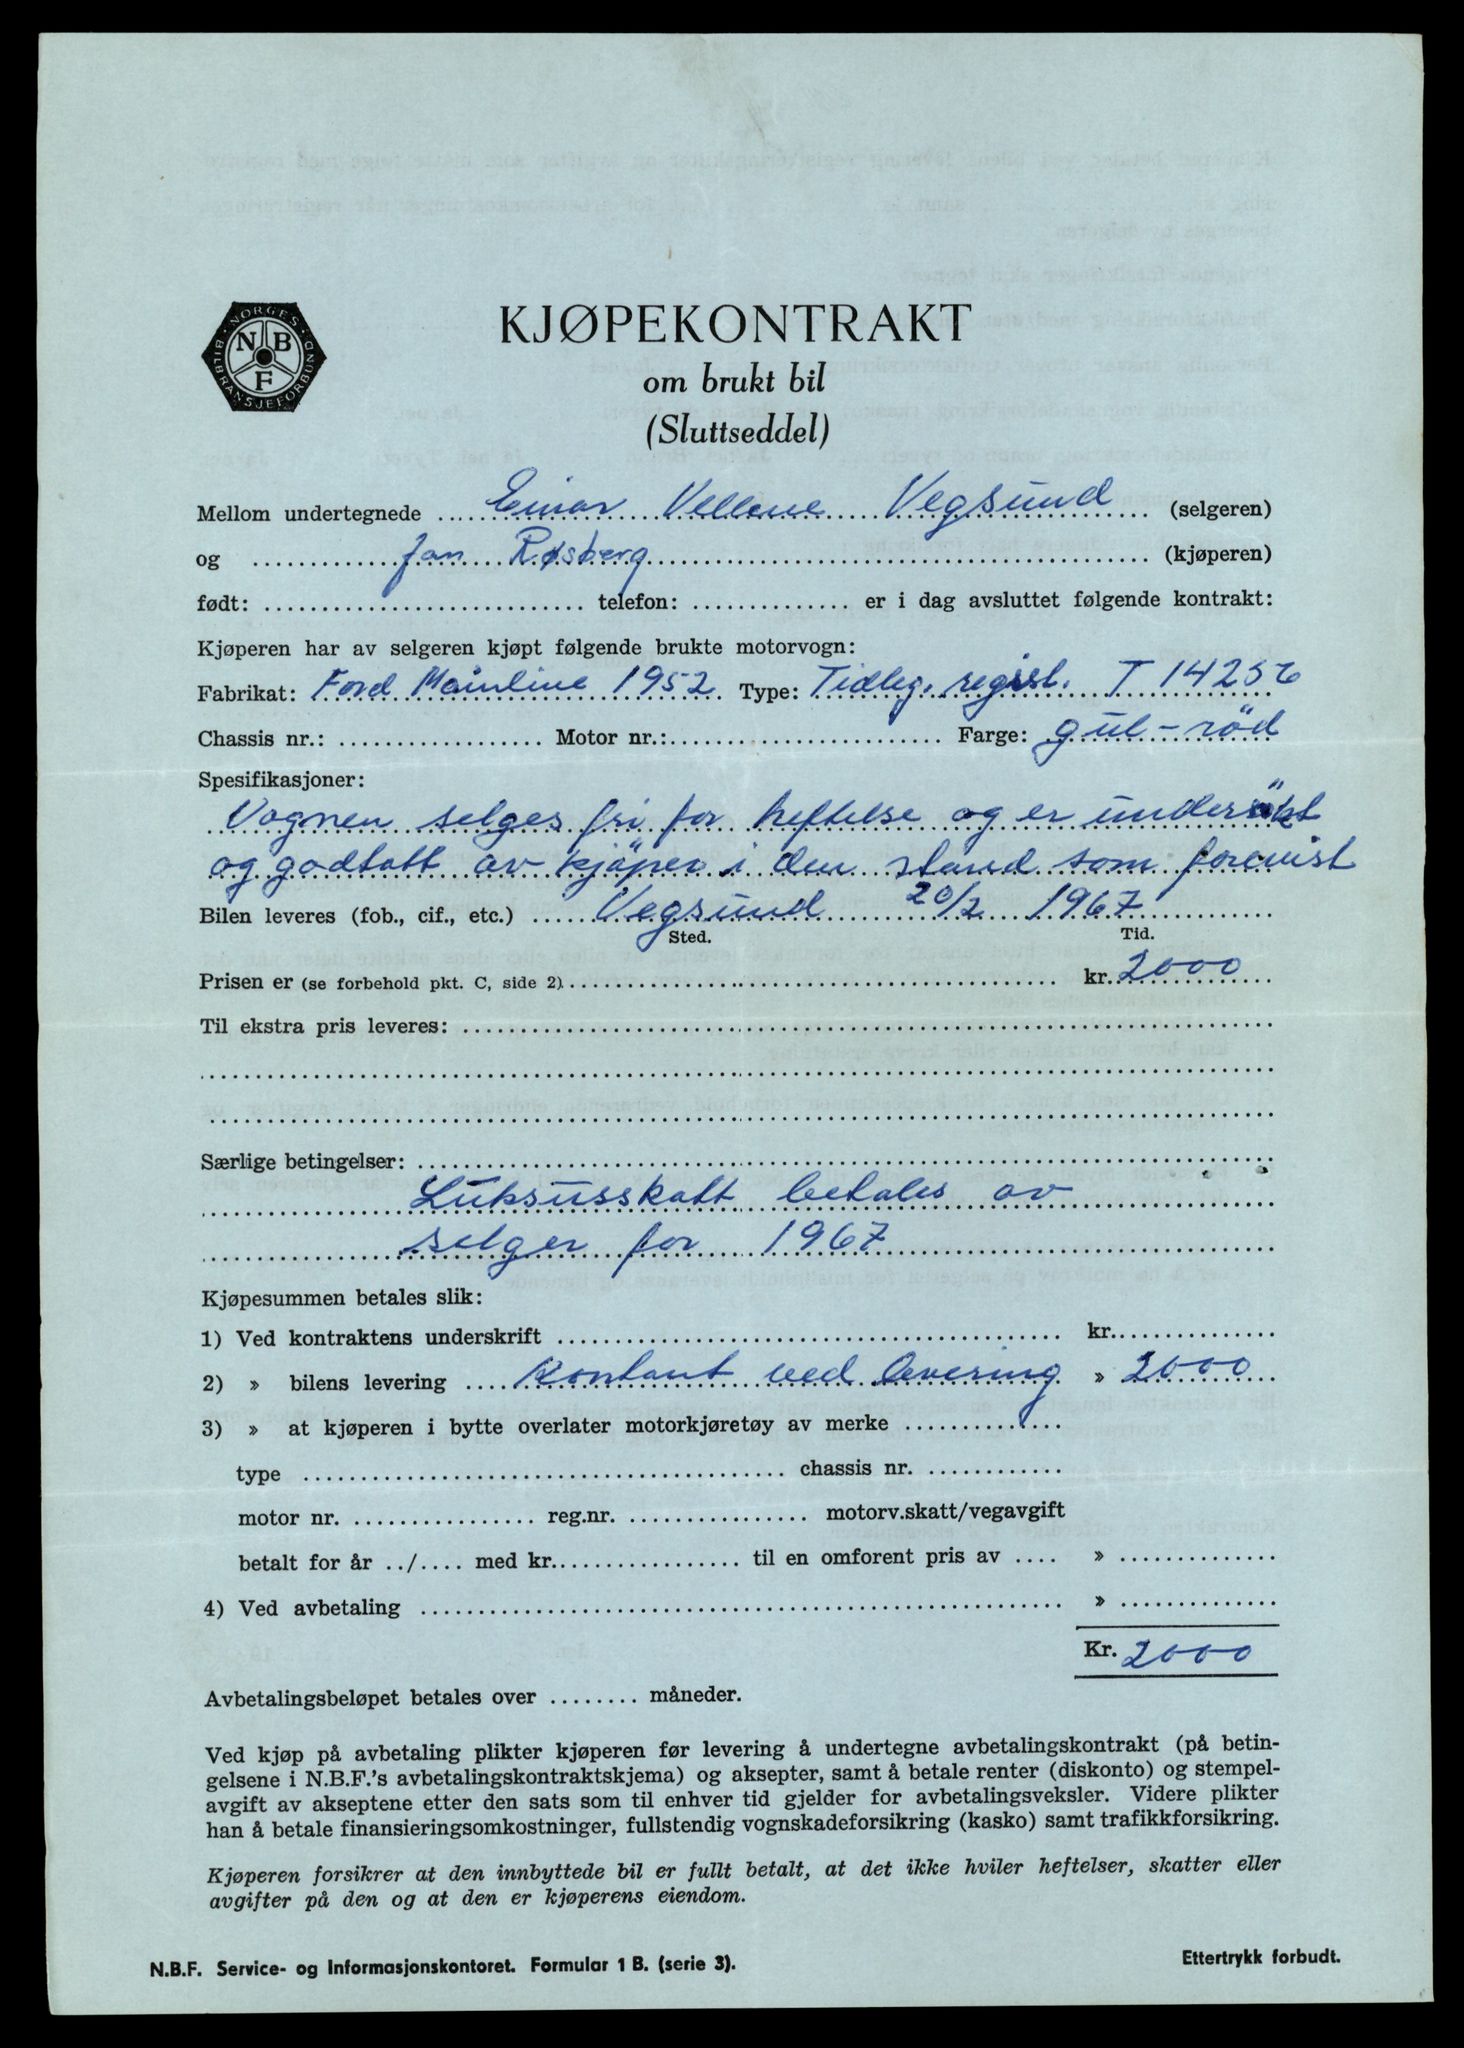 NORGES BILBRANSJEFORBUND
N B F
KJØPEKONTRAKT
om brukt bil
(Sluttseddel)
Mellom undertegnede Einar Vellene Vegsund (selgeren)
og Jan Røsberg (kjøperen)
født: telefon: er i dag avsluttet følgende kontrakt:
Kjøperen har av selgeren kjøpt følgende brukte motorvogn:
Fabrikat: Ford Mainline 1952 Type: Tidlig. regist. T 14256
Chassis nr.: Motor nr.: Farge: gul-röd
Spesifikasjoner:
Vognen selges fri for heftelse og er undersökt
og godtatt av kjöper i den stand som forevist
Bilen leveres (fob., cif., etc.) Vegsund 20/2 1967
Sted. Tid.
Prisen er (se forbehold pkt. C, side 2) kr. 2000
Til ekstra pris leveres:
Særlige betingelser:
Luksusskatt betales av
selger for 1967
Kjøpesummen betales slik:
1) Ved kontraktens underskrift kr.
2) » bilens levering Kontant ved levering » 2000
3) » at kjøperen i bytte overlater motorkjøretøy av merke
type chassis nr.
motor nr. reg.nr. motorv.skatt/vegavgift
betalt for år ../.... med kr. til en omforent pris av .... »
4) Ved avbetaling »
Kr. 2000
Avbetalingsbeløpet betales over ........ måneder.
Ved kjøp på avbetaling plikter kjøperen før levering å undertegne avbetalingskontrakt (på betin-
gelsene i N.B.F.'s avbetalingskontraktskjema) og aksepter, samt å betale renter (diskonto) og stempel-
avgift av akseptene etter den sats som til enhver tid gjelder for avbetalingsveksler. Videre plikter
han å betale finansieringsomkostninger, fullstendig vognskadeforsikring (kasko) samt trafikkforsikring.
Kjøperen forsikrer at den innbyttede bil er fullt betalt, at det ikke hviler heftelser, skatter eller
avgifter på den og at den er kjøperens eiendom.
N.B.F. Service- og Informasjonskontoret. Formular 1 B. (serie 3). Ettertrykk forbudt.